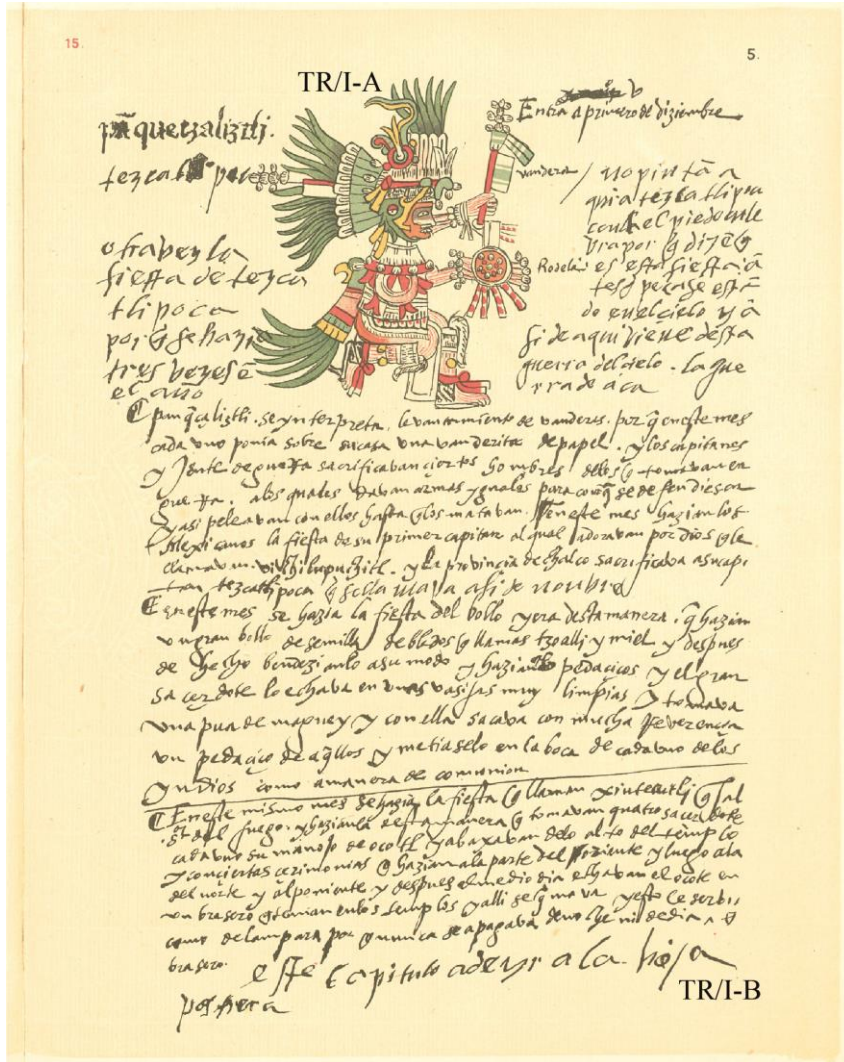 15.
5.
TR/I-A
pãquetzaliztli.
tezcatl poca
otra vez la
fiesta de tezca
tlipoca
por q se hazia
tres vezes ē
el año
Entra a primero de diziembre
vandera
no pintã a
qui a tezcatlipoca
con el pie de
vra por q dizē q
Rodela
es esta fiesta
tesd pecase está
do en el cielo y a
si de aqui viene desta
guerra del cielo. la gue
rra de aca
panq̃çaliztli. se ynterpreta. levantamiento de vanderas. por q̃ en este mes
cada uno ponia sobre su casa una vanderita de papel. y los capitanes
y Jente de guerra sacrificavan ciertos hombres delos q tomavan en
guerra. alos quales davan armas yguales para con q̃ se defendiesen
y asi peleavan con ellos hasta q los matavan. en este mes hazian los
Mexicanos la fiesta de su primer capitan al qual adoravan por dios q le
llamavan. vitzilopuchitl. y la provincia de chalco sacrificava a su capi
tan tezcatlipoca q se llamava asi de nonbre
En este mes se hazia la fiesta del bollo y era desta manera. q̃ hazian
un gran bollo de semilla de bledos q llaman tzoalli y miel y despues
de hecho bendezianlo a su modo y hazianlo pedacicos y el gran
sacerdote lo echava en unas vasijas muy limpias y tomava
una pua de maguey y con ella sacava con mucha Reverencia
un pedaço de aq̃llos y metiaselo en la boca de cada uno de los
yndios como a manera de comunion
En este mismo mes se hazia la fiesta q llaman xiutecutli q̃ al
dios del fuego. y hazianla desta manera q tomavan quatro sacerdotes
cada uno su manojo de ocotl y abaxavan delo alto del templo
y con ciertas cerimonias q hazian ala parte del oriente y luego ala
del norte y al poniente y despues al medio dia echavan el ocote en
un brasero q tenian en los templos y alli se q̃mava y esto le servi
como de lampara por q nunca se apagava de noche ni de dia
brasero.
este capitulo a de yr a la hoja
postrera
TR/I-B